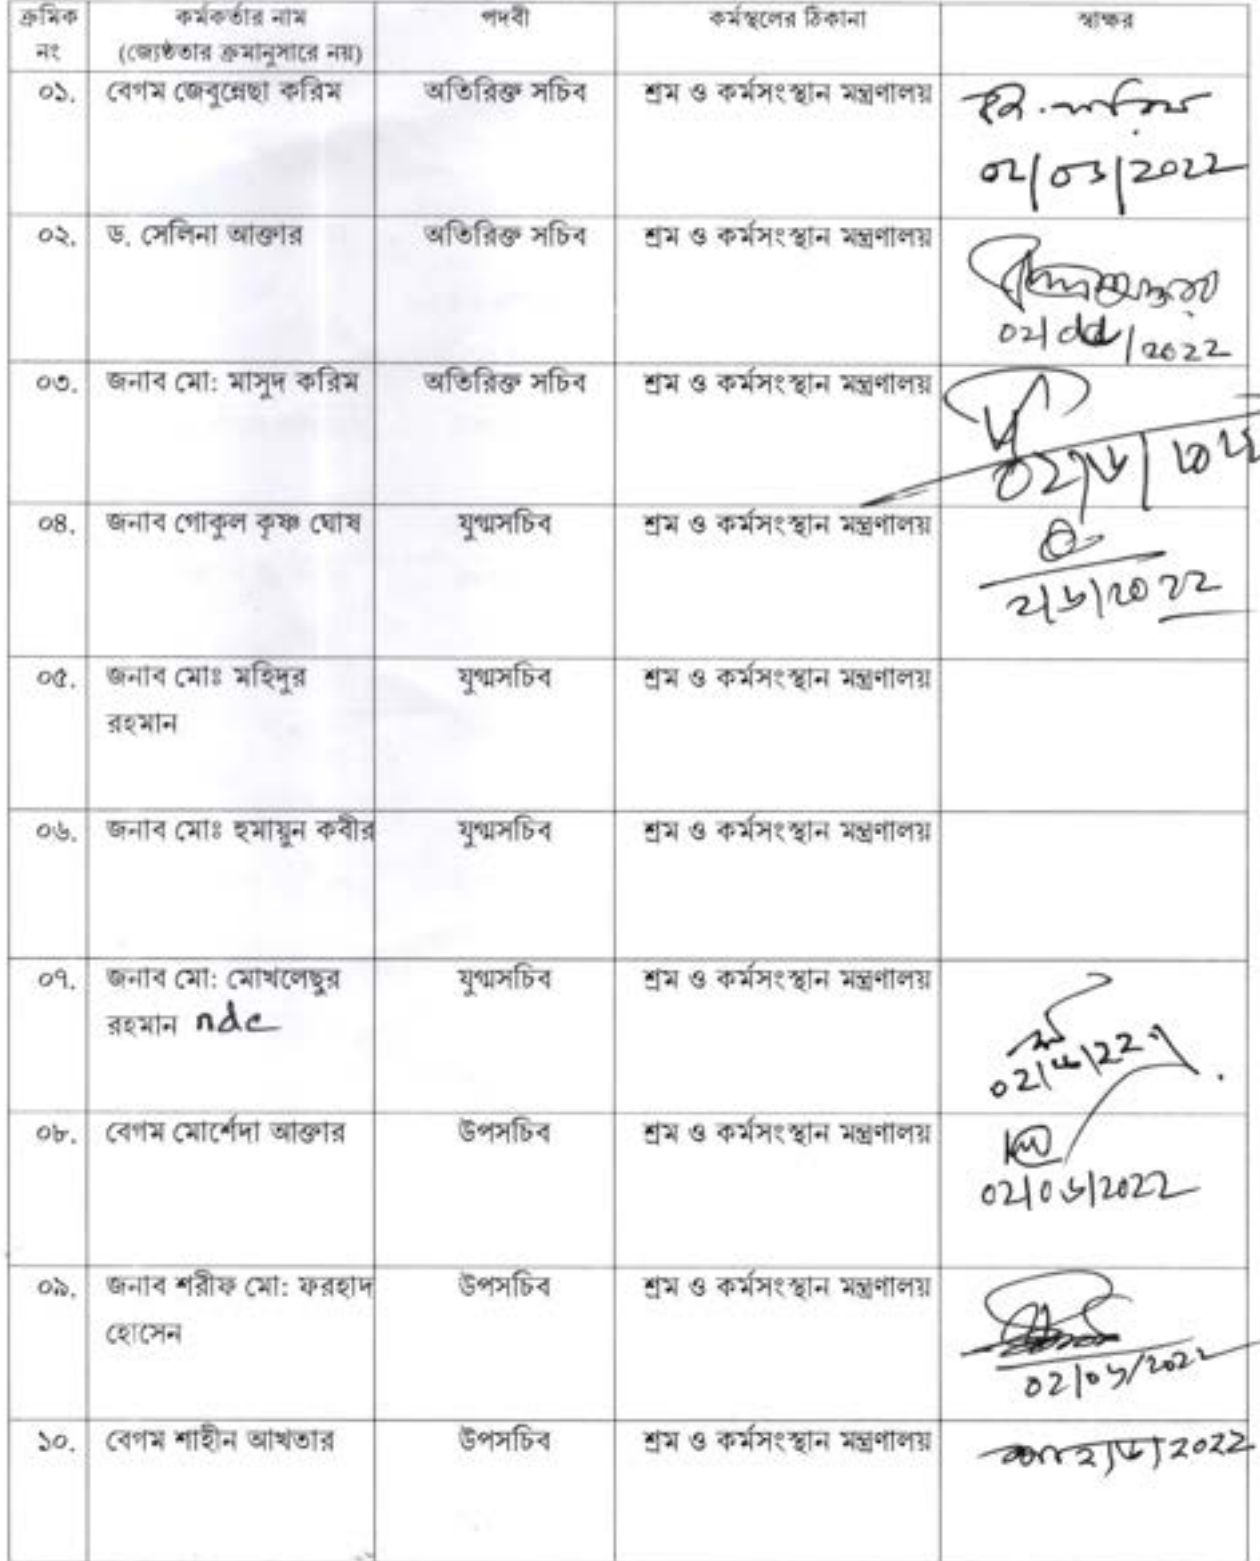 ক্রমিক নং কর্মকর্তার নাম (জ্যেষ্ঠতার ক্রমানুসারে নয়) পদবী কর্মস্থলের ঠিকানা স্বাক্ষর
০১. বেগম জেবুন্নেছা করিম অতিরিক্ত সচিব শ্রম ও কর্মসংস্থান মন্ত্রণালয়
০২. ড. সেলিনা আক্তার অতিরিক্ত সচিব শ্রম ও কর্মসংস্থান মন্ত্রণালয়
০৩. জনাব মো: মাসুদ করিম অতিরিক্ত সচিব শ্রম ও কর্মসংস্থান মন্ত্রণালয়
০৪. জনাব গোকুল কৃষ্ণ ঘোষ যুগ্মসচিব শ্রম ও কর্মসংস্থান মন্ত্রণালয়
০৫. জনাব মোঃ মহিদুর যুগ্মসচিব শ্রম ও কর্মসংস্থান মন্ত্রণালয়
রহমান
০৬. জনাব মোঃ হুমায়ুন কবীর যুগ্মসচিব শ্রম ও কর্মসংস্থান মন্ত্রণালয়
০৭. জনাব মো: মোখলেছুর যুগ্মসচিব শ্রম ও কর্মসংস্থান মন্ত্রণালয়
রহমান ndc
০৮. বেগম মোর্শেদা আক্তার উপসচিব শ্রম ও কর্মসংস্থান মন্ত্রণালয়
০৯. জনাব শরীফ মো: ফরহাদ উপসচিব শ্রম ও কর্মসংস্থান মন্ত্রণালয়
হোসেন
১০. বেগম শাহীন আখতার উপসচিব শ্রম ও কর্মসংস্থান মন্ত্রণালয়